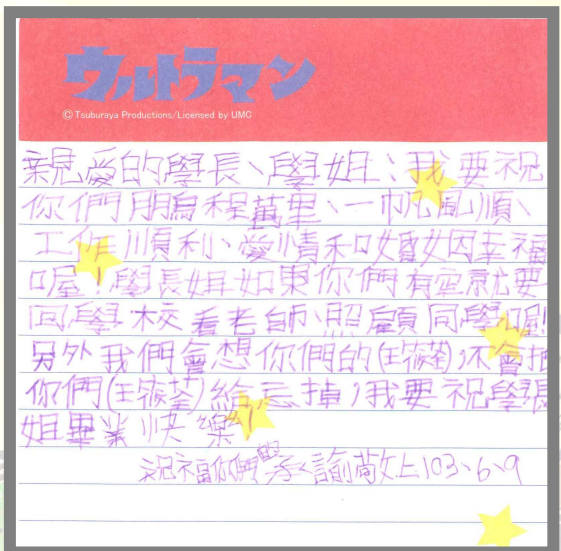 ウルトラマン
© Tsuburaya Productions/Licensed by UMC
親愛的學長、學姐、我要祝
你們鵬程萬里、一帆風順、
工作順利、愛情和婚姻幸福
喔!學長姐如果你們有空就要
回學校看老師、照顧同學喔!
另外我們會想你們的(王筱荃),不會把
你們(王筱荃)給忘掉,我要祝學長
姐畢業快樂!
祝福你們 學 諭敬上103、6、9